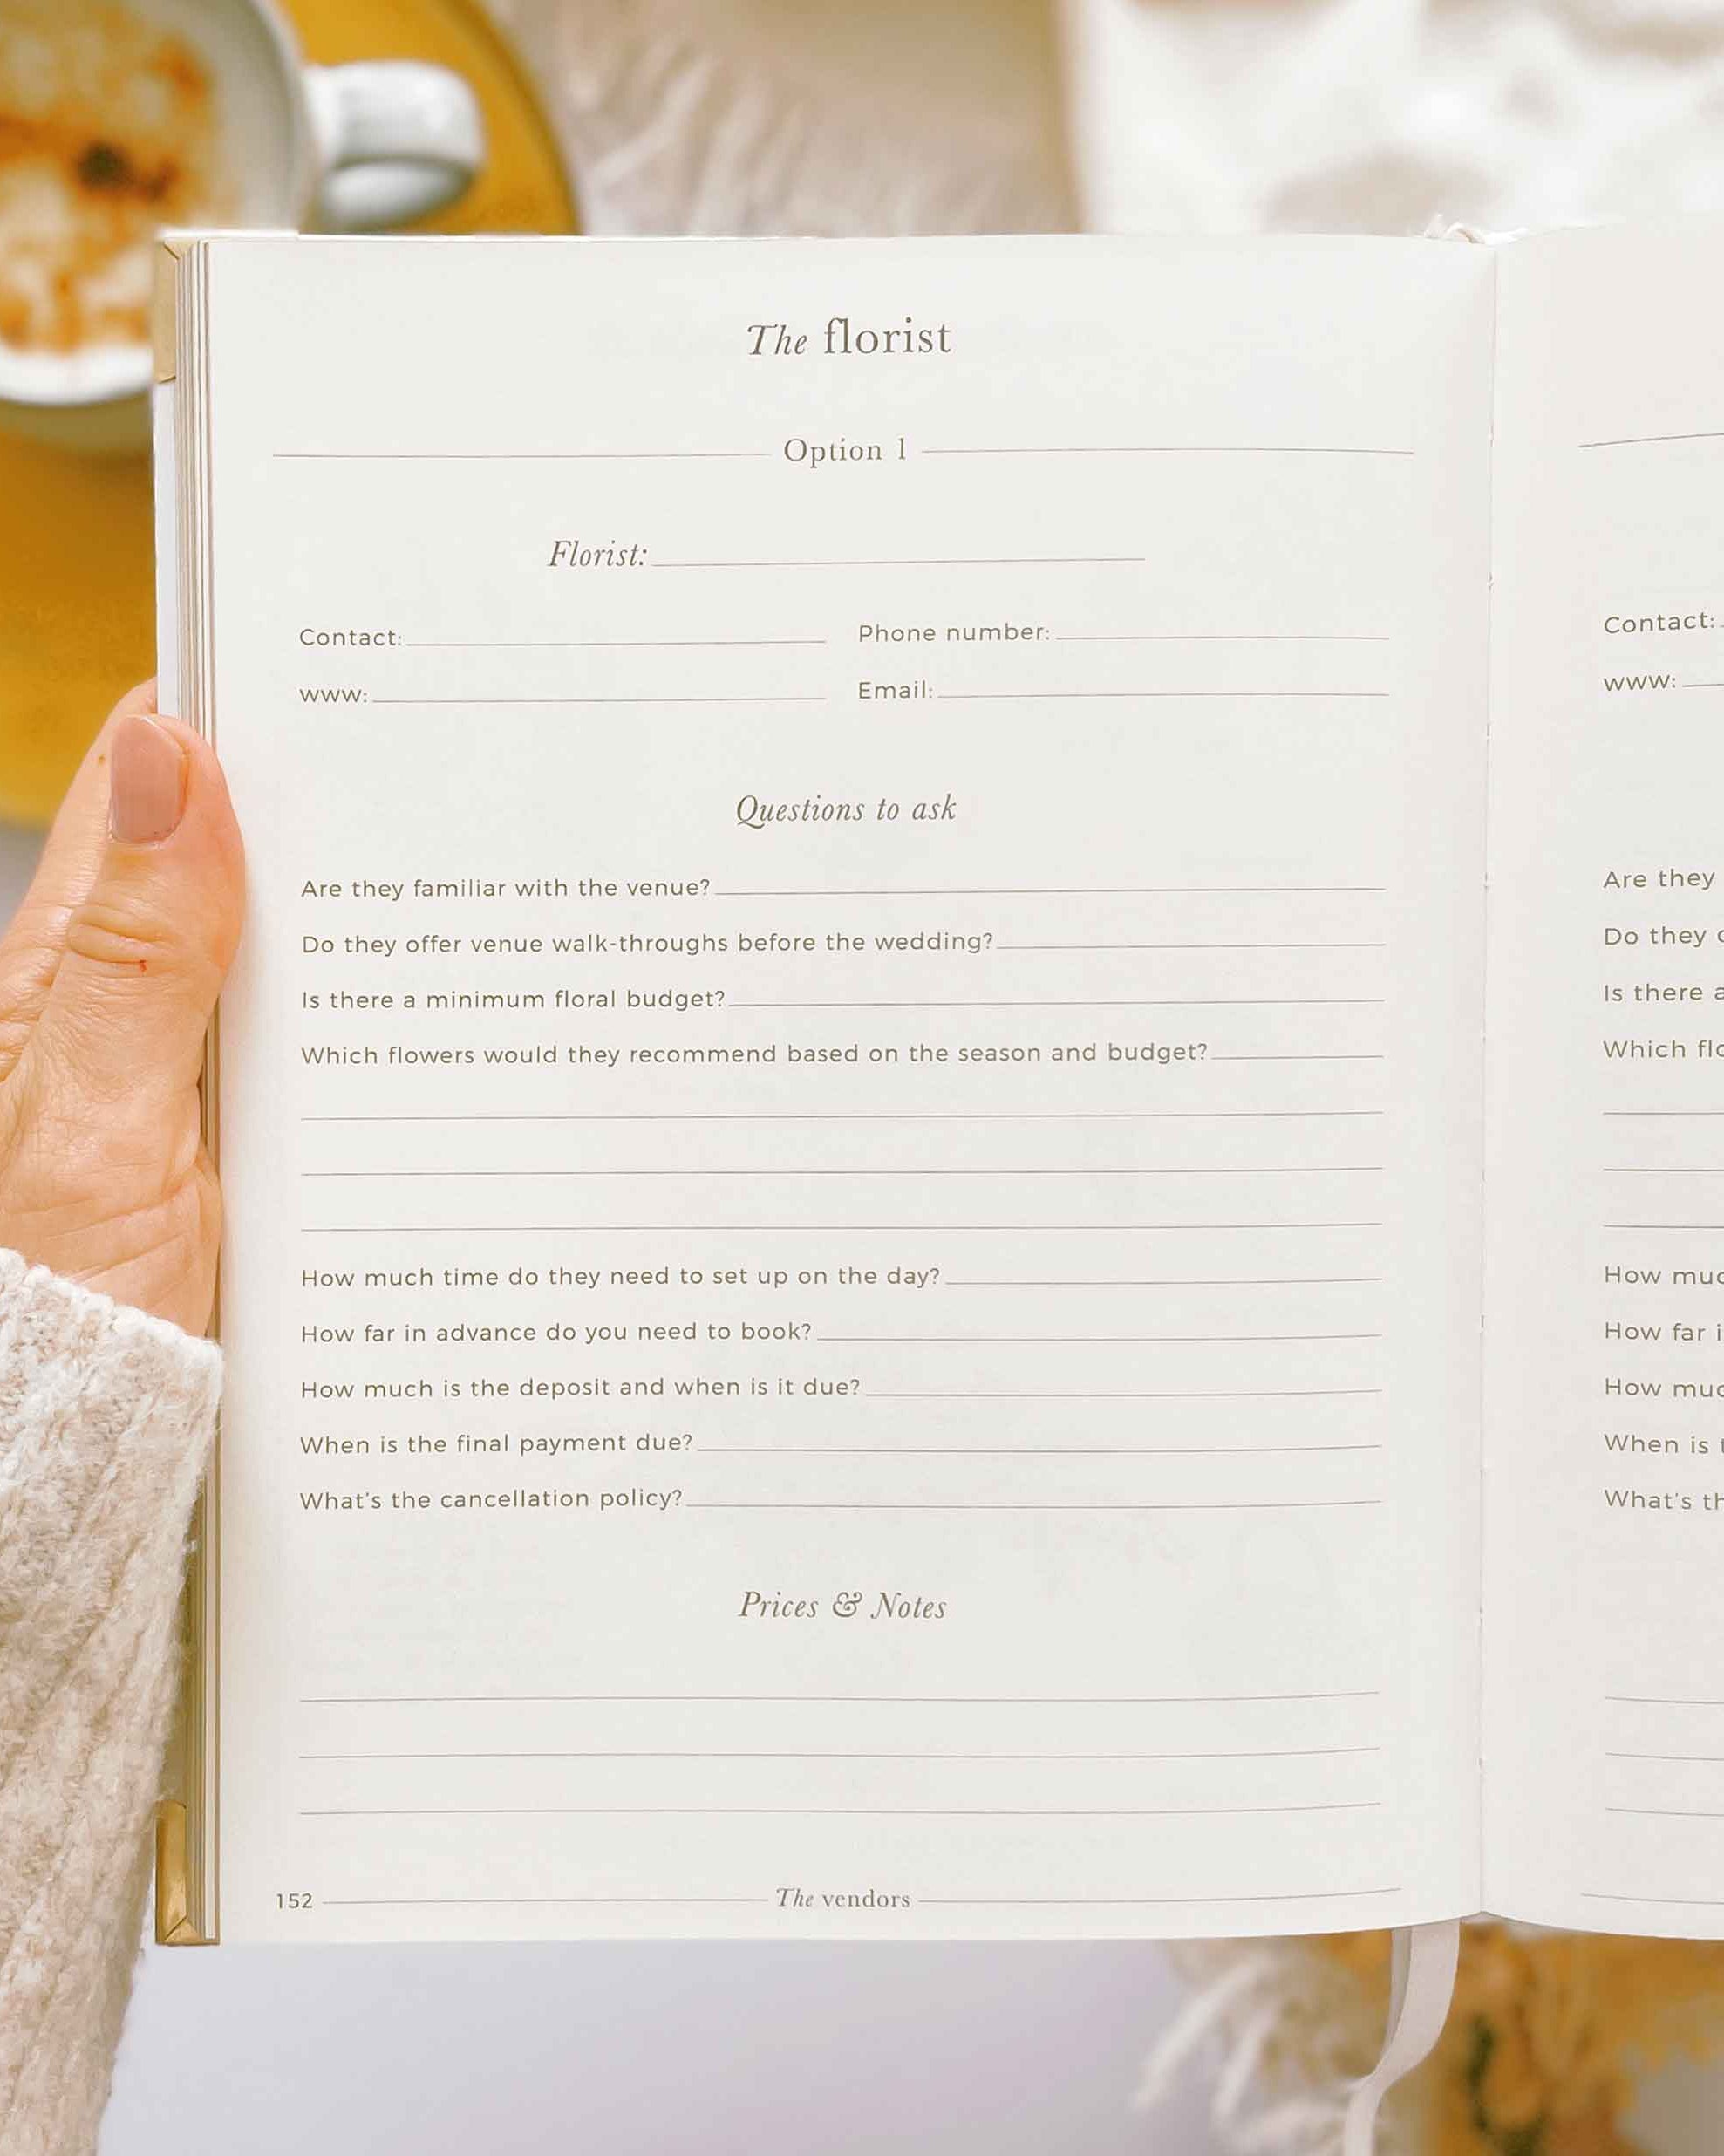 The florist
Option 1
Florist:
Contact: Phone number:
www: Email:
Questions to ask
Are they familiar with the venue?
Do they offer venue walk-throughs before the wedding?
Is there a minimum floral budget?
Which flowers would they recommend based on the season and budget?
How much time do they need to set up on the day?
How far in advance do you need to book?
How much is the deposit and when is it due?
When is the final payment due?
What's the cancellation policy?
Prices & Notes
152 The vendors
Contact:
www:
Are they
Do they
Is there a
Which
How
How far
How
When is
What's